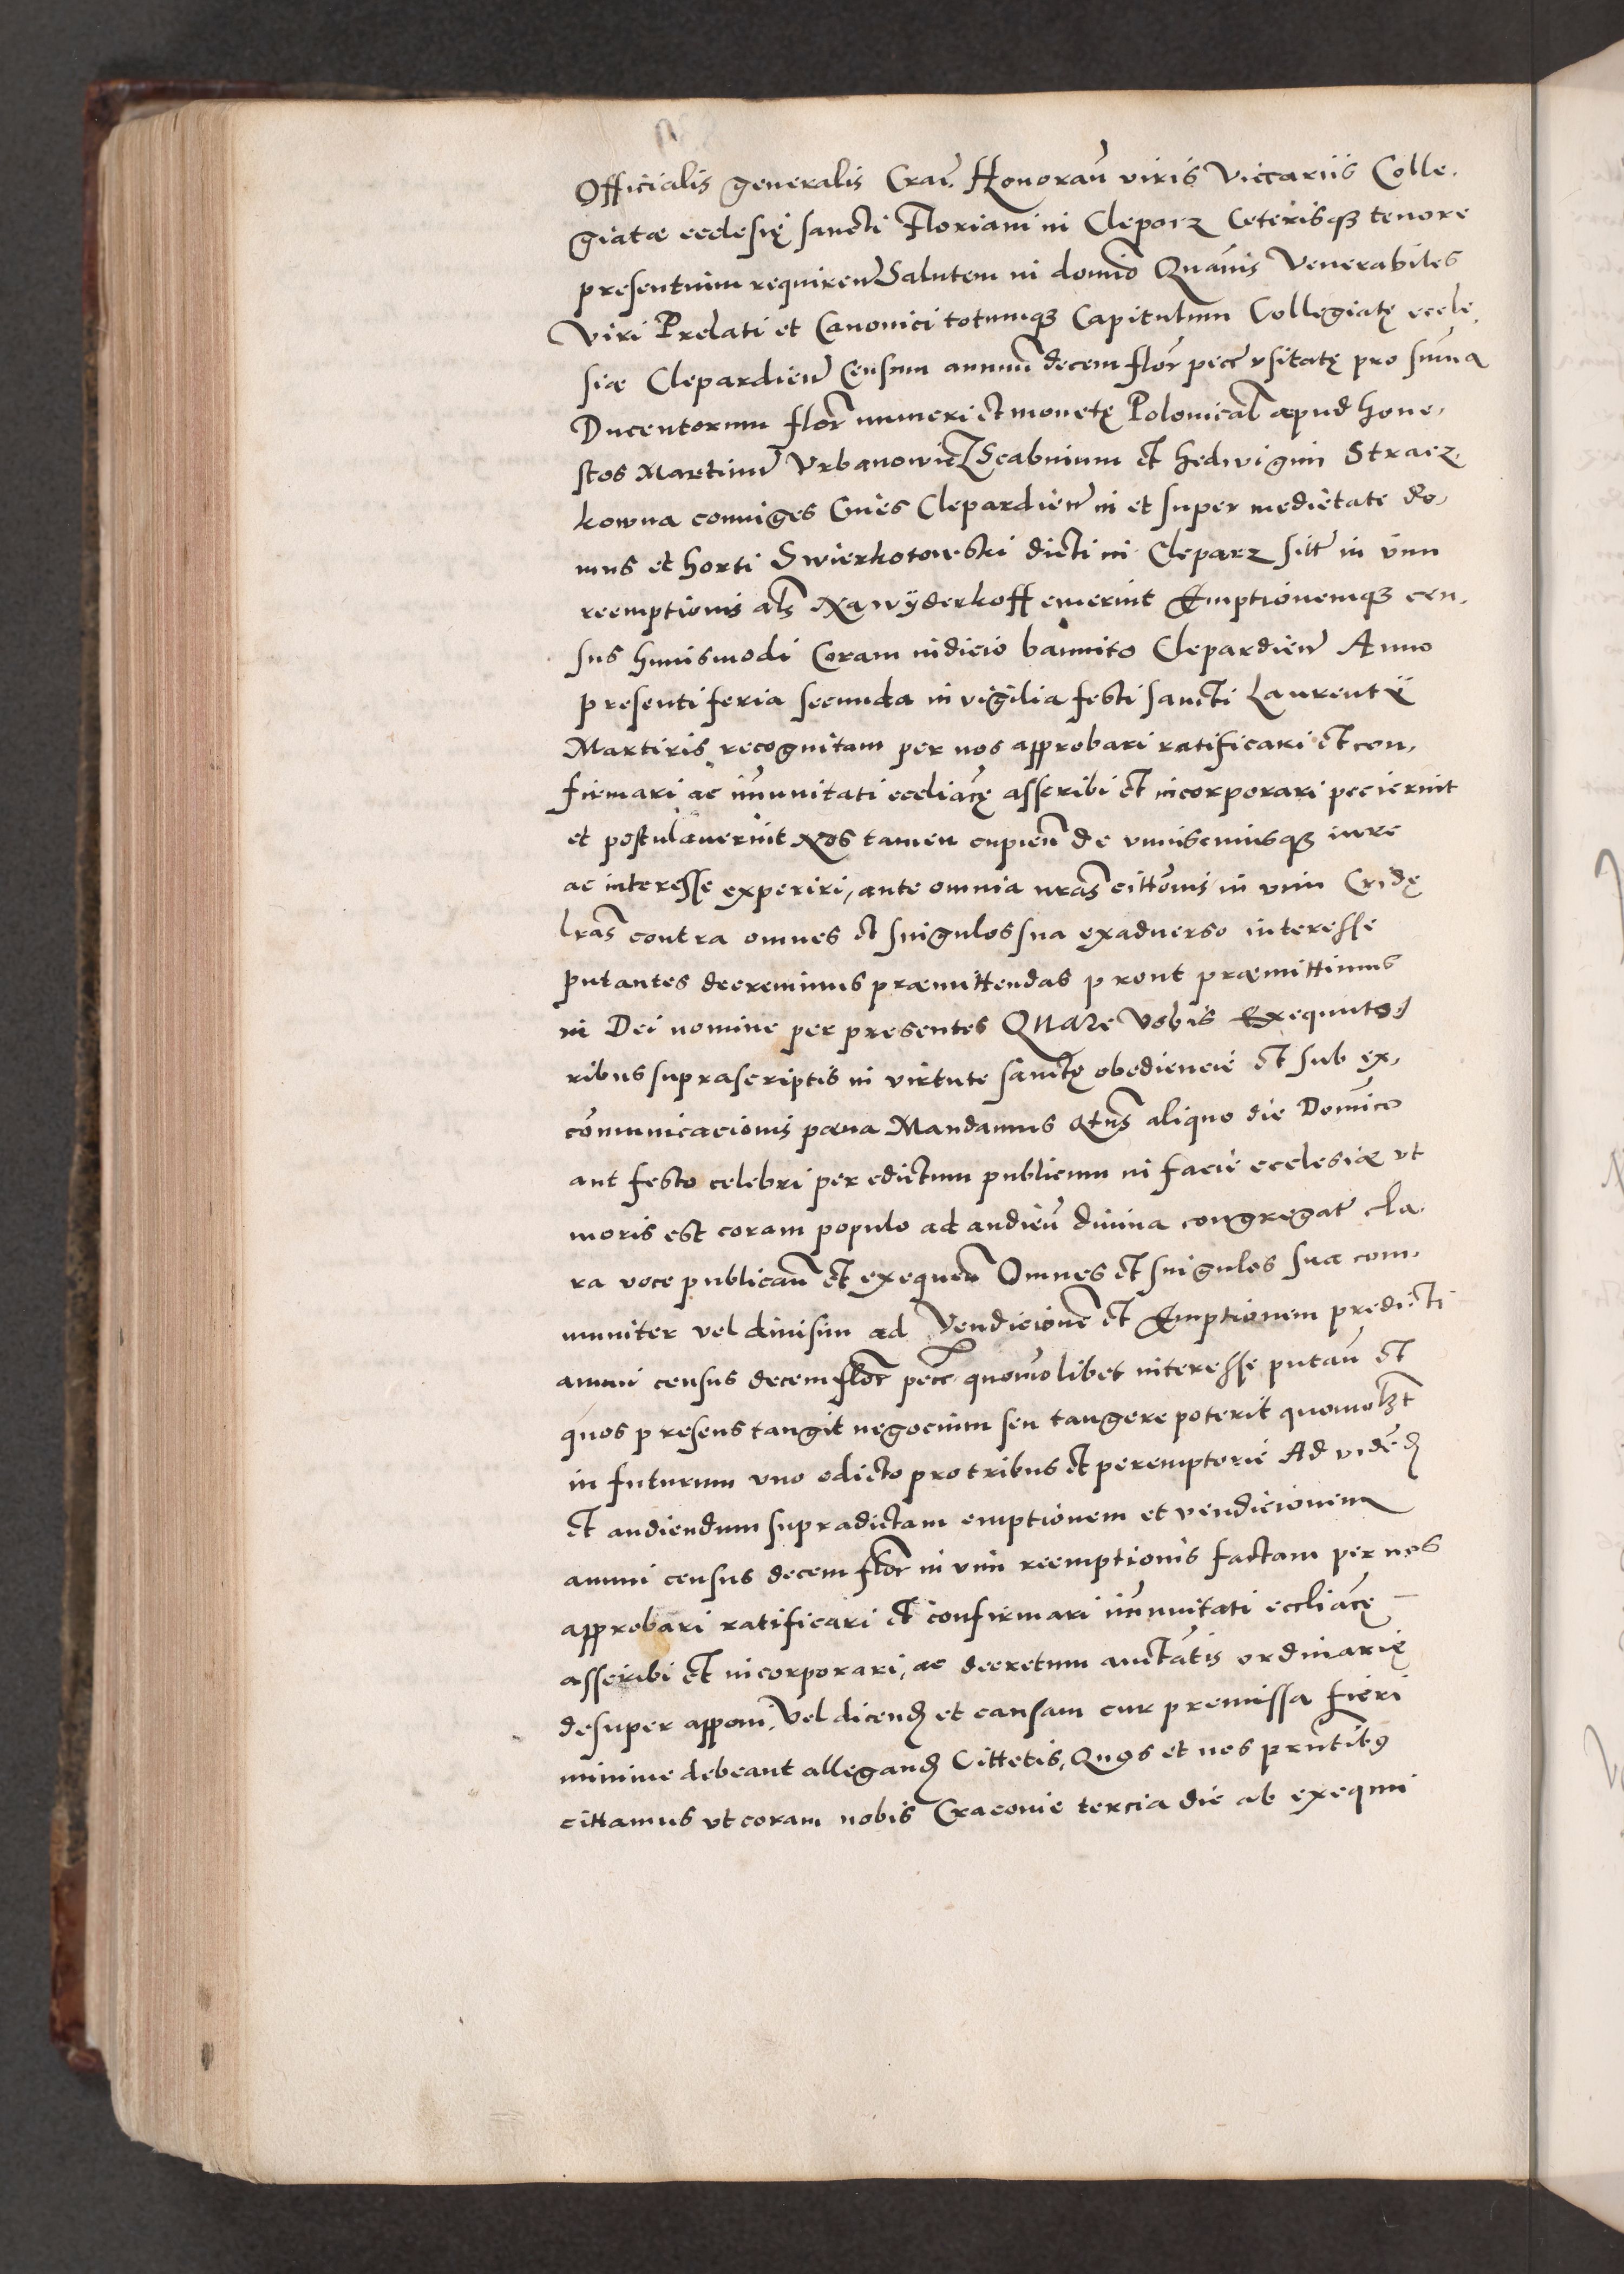 Officialis generalis Crac̄. Honoran̄ viris Viccariis Colle,
giatæ ecclesię sancti Floriani in Cleparz Ceterisqꝫ tenore
presentium requiren̄ Salutem in domīo Quāvis Venerabiles
Viri Prelati et Canonici totumqꝫ Capitulum Collegiatę eccle,
siæ Clepardien̄ Censum annuū decem flor̄ pecc̄ vsitatę pro sum̄a
Ducentorum flor̄ numeri et monetę Polonical̄ apud hone,
stos Martinū Vrbanowicz Scabinum et Hedvigim Stracz,
kowna coniuges Ciuēs Clepardien̄ in et super medietate do,
mus et horti Swierkotowski dicti in Cleparz sitt̄ in vim
reemptionis al̄s Nawÿderkoff emerint Emptionemqꝫ cen,
sus huiusmodi Coram iudicio bannito Clepardien̄ Anno
presenti feria secunda in vigilia festi sancti Laurentÿ
Martiris recognitam per nos approbari ratificari et con,
firmari ac im̄unitati eccliācę asscribi et incorporari pecierint
et postulauerint Nos tamen cupien̄ de vniuscuiusqꝫ iure
ac interesse experiri, ante omnia nrās cittōnis in vim Cridę
lrās contra omnes et singulos sua exaduerso interesse
putantes decreuimus præmittendas prout præmittimus
in Dei nomine per presentes Quare Vobis Exequuto,
ribus suprascriptis in virtute sanctę obediencie et sub ex,
cōmunicacionis pæna Mandamus qtn̄s aliquo die Dominīco
aut festo celebri per edictum publicum in facie ecclesiæ vt
moris est coram populo ad audien̄ diuina congregat̄ cla,
ra voce publican̄ et exequen̄ Omnes et singulos sua com,
muniter vel diuisim ad Vendicionē et Emptionem predicti
annui census decem flor̄ pecc̄ quomōlibet interesse putan̄ et
quos presens tangit negocium seu tangere poterit quomolꝫt
in futurum vno edicto pro tribus et peremptorie Ad viden̄d
et audiendum supradictam emptionem et vendicionem
annui census decem flor̄ in vim reemptionis factam per nos
approbari ratificari et confirmari im̄unitati eccliācę
asscribi et incorporari, ac decretum auctātis ordinarię
desuper apponi, Vel dicend̄ et causam cur premissa fieri
minime debeant allegand̄ Cittetis, Quos et nos prn̄tibꝰ
cittamus vt coram nobis Cracouie tercia die ab exequui